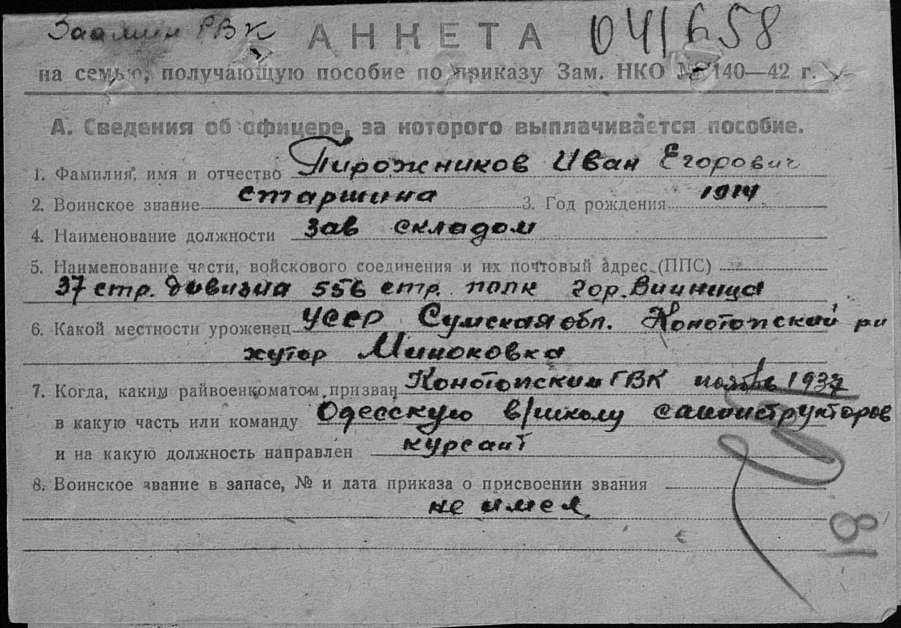 Заамин РВК
АНКЕТА 041658
на семью, получающую пособие по приказу Зам. НКО № 140—42 г.
А. Сведения об офицере, за которого выплачивается пособие.
1. Фамилия, имя и отчество Пирожников Иван Егорович
2. Воинское звание старшина 3. Год рождения 1914
4. Наименование должности зав складом
5. Наименование части, войскового соединения и их почтовый адрес (ППС)
37 стр. дивизиа 556 стр. полк гор. Винница
6. Какой местности уроженец УССР Сумская обл. Конотопский ри
хутор Миноковка
7. Когда, каким райвоенкоматом призван Конотопским ГВК ноябрь 1937
в какую часть или команду Одесскую в/школу санинструкторов
и на какую должность направлен курсант
8. Воинское звание в запасе, № и дата приказа о присвоении звания
не имел
81